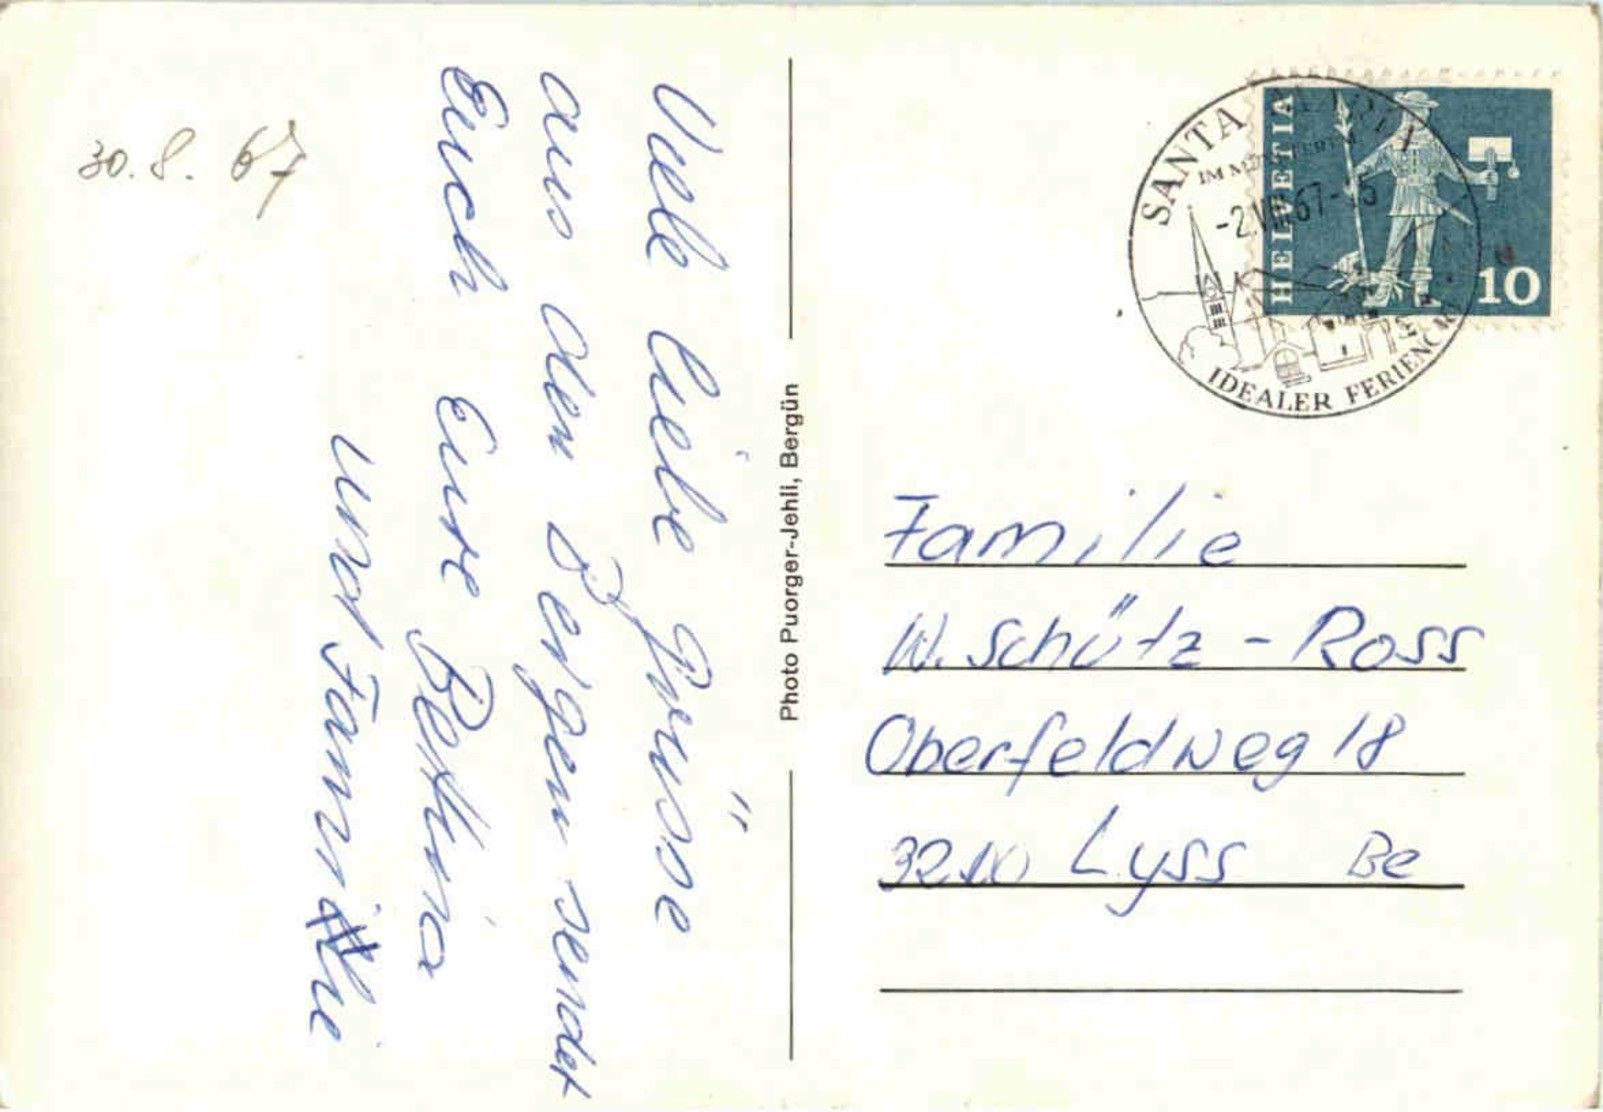 30.8.67
Viele liebe Grüsse
aus den Bergen sendet
Euch Eure Bettina
und Familie
Photo Puorger-Jehli, Bergün
SANTA MARIA
IM MÜNSTERTAL
-2.VIII.67-15
IDEALER FERIENORT
HELVETIA
10
Familie
W. Schütz-Ross
Oberfeldweg 18
Lyss Be